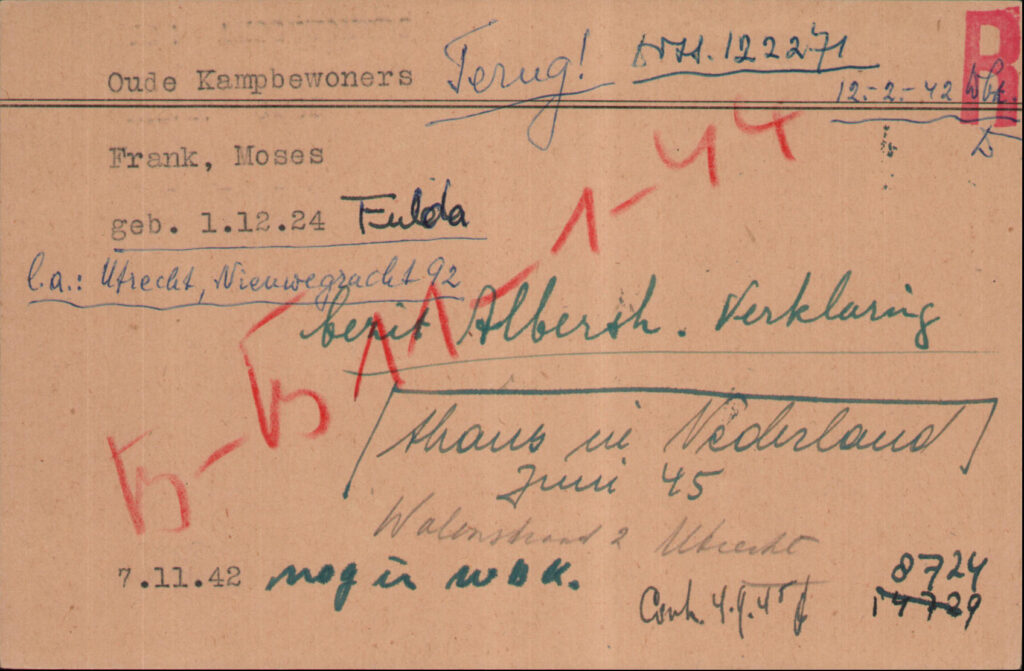 Oude Kampbewoners Terug! 122271
12.-2.-42
R
Frank, Moses
geb. 1.12.24 Fulda
l.a.: Utrecht, Nieuwegracht 92
B-B 11-1-44
bezit Albersh. Verklaring
thans in Nederland
Juni 45
2 Utrecht
7.11.42 nog in WBK.
8724
14729